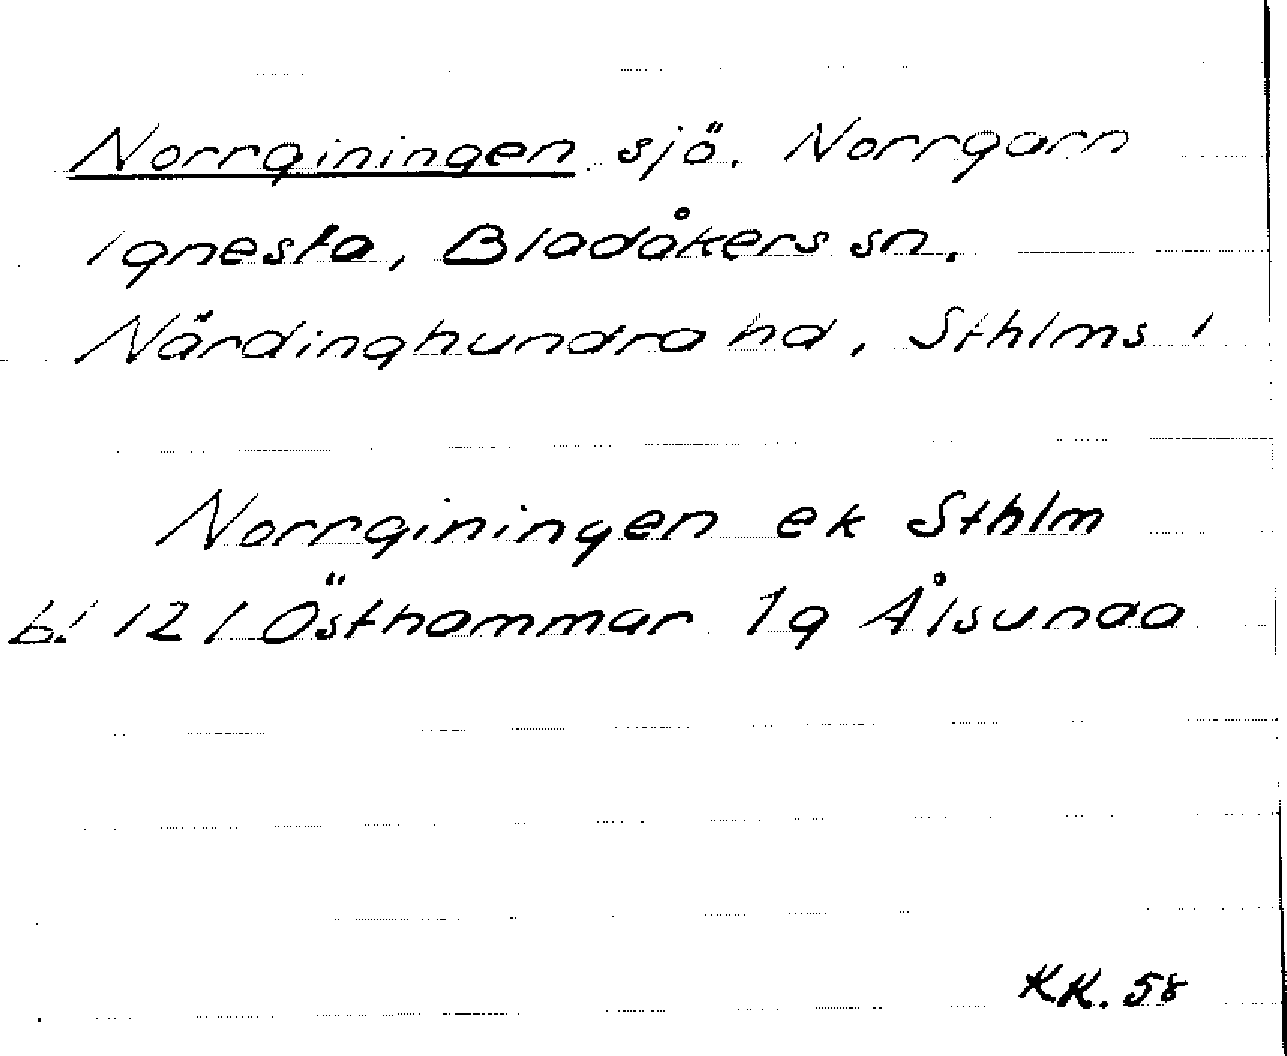 Norrginingen sjö. Norrgarn
Ignesta, Bladåkers sn.
Närdinghundra hd, Sthlms l
Norrginingen ek Sthlm
bl 12 I Östhammar 1g Ålsunda
KK. 58